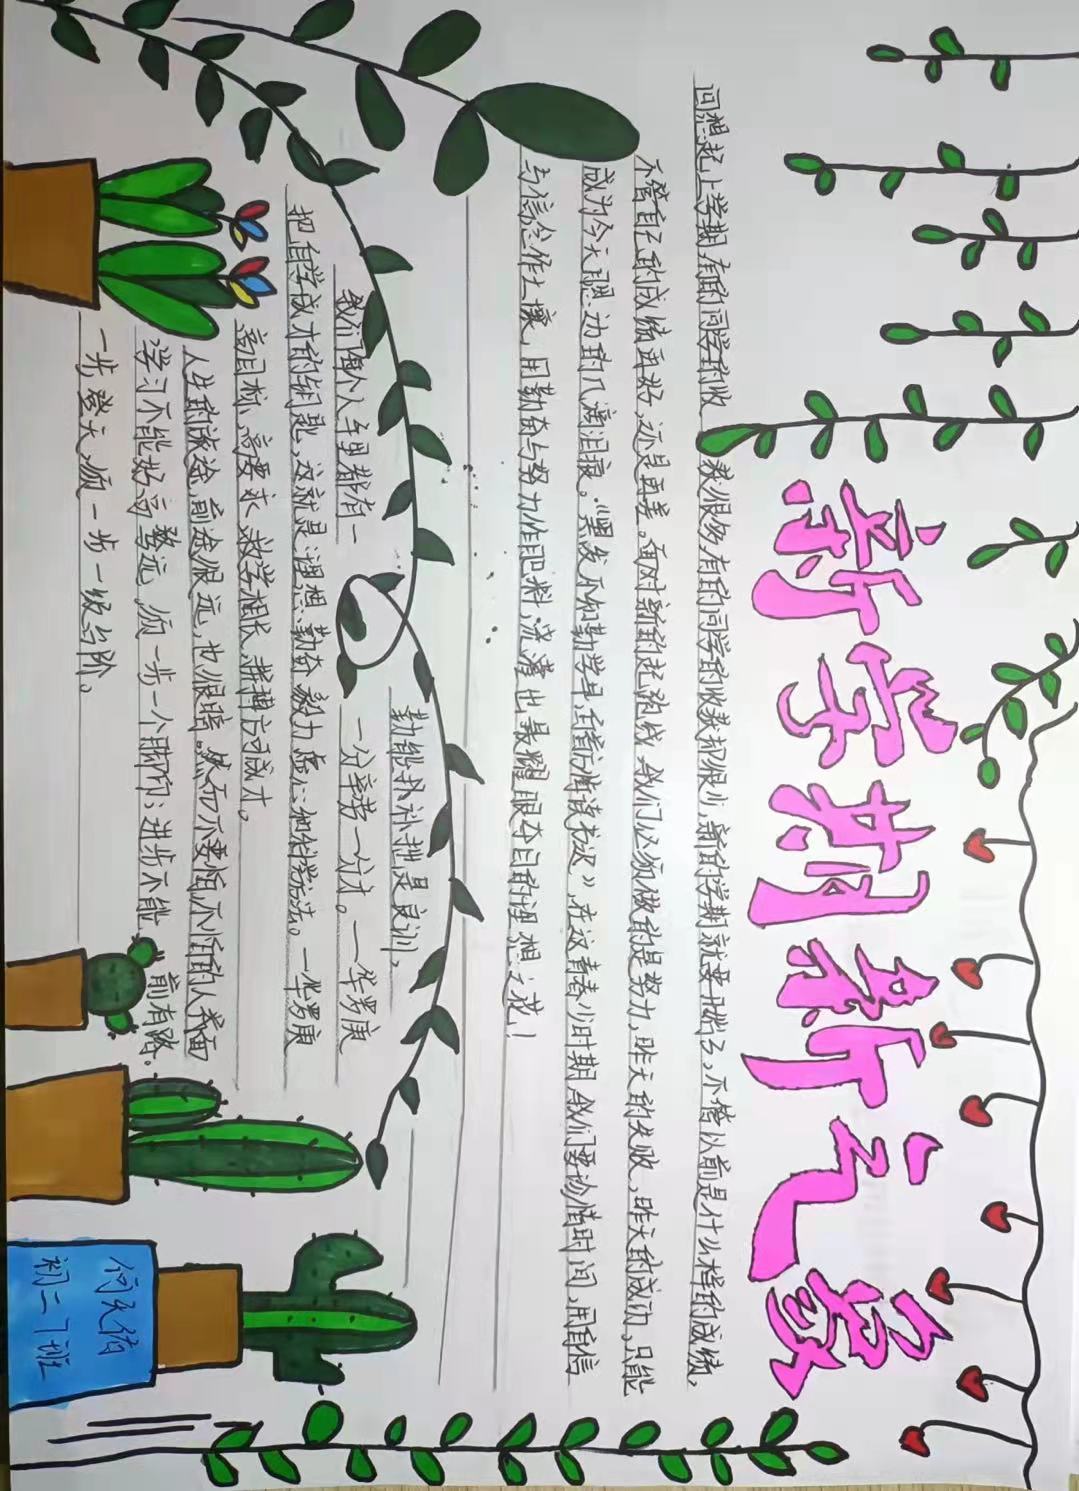 新学期新气象
回想起上学期有的同学的收
获很多有的同学的收获却很少,新的学期就要开始了,不管以前是什么样的成绩,
不管自己的成绩再好,还是再差。面对新的起跑线我们必须做的是努力,昨天的失败、昨天的成功,只能
成为今天成功的几滴泪痕。"黑发不知勤学早,白首方悔读书迟》在这青春少时期,我们要珍惜时间,用自信
与信念作土壤,用勤奋与努力作肥料,浇灌出最耀眼夺目的理想之花!
勤能补拙是良训,
我们每个人手里都有一
一分辛劳一分才。—华罗庚
把自学成才的钥匙,这就是:理想、勤奋、毅力、虚心、和科学方法。—华罗庚
高目标,高要求,教学相长,拼搏方可成才。
人生的旅途,前途很远,也很暗。然而不要怕,不怕的人类面
前有路。
学习不能好高骛远,须一步一个脚印;进步不能
一步登天,须一步一级台阶。
初二7班